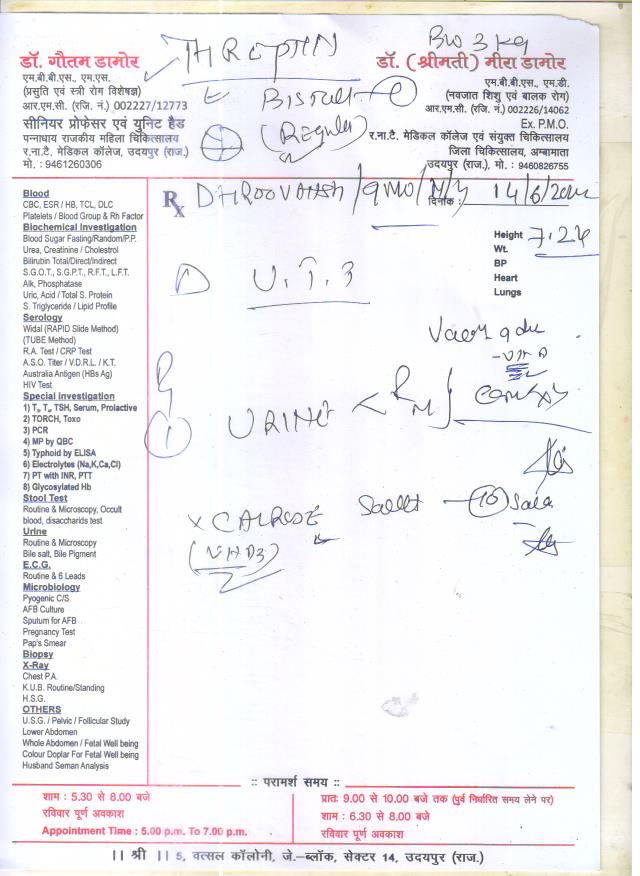 THREPTIN
BW 3 kg
डॉ. गौतम डामोर
एम.बी.बी.एस., एम.एस.
(प्रसुति एवं स्त्री रोग विशेषज्ञ)
आर.एम.सी. (रजि. नं.) 002227/12773
सीनियर प्रोफेसर एवं युनिट हैड
पन्नाधाय राजकीय महिला चिकित्सालय
र.ना.टै. मेडिकल कॉलेज, उदयपुर (राज.)
मो. : 9461260306
(Regular)
डॉ. (श्रीमती) मीरा डामोर
एम.बी.बी.एस., एम.डी.
(नवजात शिशु एवं बालक रोग)
आर.एम.सी. (रजि. नं.) 002226/14062
Ex. P.M.O.
र.ना.टै. मेडिकल कॉलेज एवं संयुक्त चिकित्सालय
जिला चिकित्सालय, अम्बामाता
उदयपुर (राज.), मो. : 9460826755
Rx
दिनांक :
Blood
CBC, ESR / HB, TCL, DLC
Platelets / Blood Group & Rh Factor
Biochemical Investigation
Blood Sugar Fasting/Random/P.P.
Urea, Creatinine / Cholestrol
Bilirubin Total/Direct/Indirect
S.G.O.T., S.G.P.T., R.F.T., L.F.T.
Alk, Phosphatase
Uric, Acid / Total S. Protein
S. Triglyceride / Lipid Profile
Serology
Widal (RAPID Slide Method)
(TUBE Method)
R.A. Test / CRP Test
A.S.O. Titer / V.D.R.L. / K.T.
Australia Antigen (HBs Ag)
HIV Test
Special Investigation
1) T₃, T₄, TSH, Serum, Prolactive
2) TORCH, Toxo
3) PCR
4) MP by QBC
5) Typhoid by ELISA
6) Electrolytes (Na,K,Ca,Cl)
7) PT with INR, PTT
8) Glycosylated Hb
Stool Test
Routine & Microscopy, Occult
blood, disaccharids test
Urine
Routine & Microscopy
Bile salt, Bile Pigment
E.C.G.
Routine & 6 Leads
Microbiology
Pyogenic C/S
AFB Culture
Sputum for AFB
Pregnancy Test
Pap's Smear
Biopsy
X-Ray
Chest P.A.
K.U.B. Routine/Standing
H.S.G.
OTHERS
U.S.G. / Pelvic / Follicular Study
Lower Abdomen
Whole Abdomen / Fetal Well being
Colour Doplar For Fetal Well being
Husband Seman Analysis
Height
Wt.
BP
Heart
Lungs
1
URINE
:: परामर्श समय ::
शाम : 5.30 से 8.00 बजे
रविवार पूर्ण अवकाश
Appointment Time : 5.00 p.m. To 7.00 p.m.
प्रातः 9.00 से 10.00 बजे तक (पुर्व निर्धारित समय लेने पर)
शाम : 6.30 से 8.00 बजे
रविवार पूर्ण अवकाश
|| श्री || 5, वत्सल कॉलोनी, जे.–ब्लॉक, सेक्टर 14, उदयपुर (राज.)